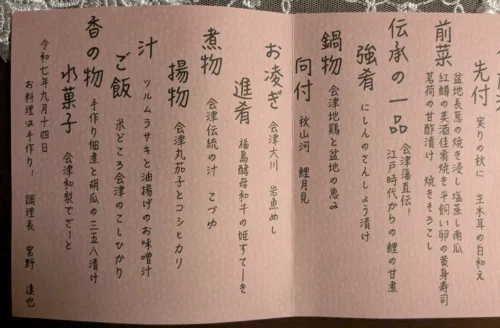 先付
実りの秋に 生木耳の白和え
前菜
盆地長葱の焼き浸し 塩蒸し南瓜
紅鱒の美酒佳肴焼き 平飼い卵の黄身寿司
茗荷の甘酢漬け 焼きもろこし
伝承の一品
会津藩直伝!
江戸時代からの鯉の甘煮
強肴
にしんのさんしょう漬け
鍋物
会津地鶏と盆地の恵み
向付
秋山河 鯉月見
お凌ぎ
会津大川 岩魚めし
進肴
福島酵母和牛の姫すてーき
煮物
会津伝統の汁 こづゆ
揚物
会津丸茄子とコシヒカリ
汁
ツルムラサキと油揚げのお味噌汁
ご飯
米どころ会津のこしひかり
香の物
手作り佃煮と胡瓜の三五八漬け
水菓子
会津和梨でざーと
令和七年九月十四日
お料理は手作り! 調理長 宮野 達也